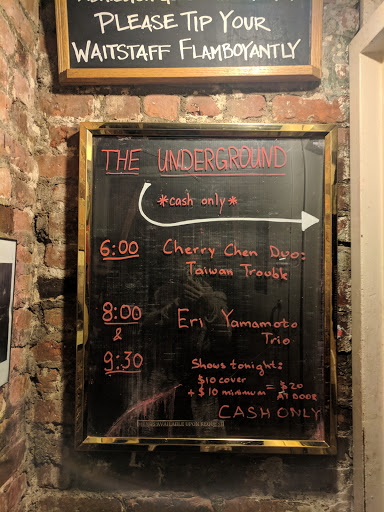 PLEASE TIP YOUR
WAITSTAFF FLAMBOYANTLY
THE UNDERGROUND
*cash only*
6:00 Cherry Chen Duo:
Taiwan Trouble
8:00 Eri Yamamoto
& Trio
9:30 Shows tonight:
$10 cover
+ $10 minimum = $20
AT DOOR
CASH ONLY